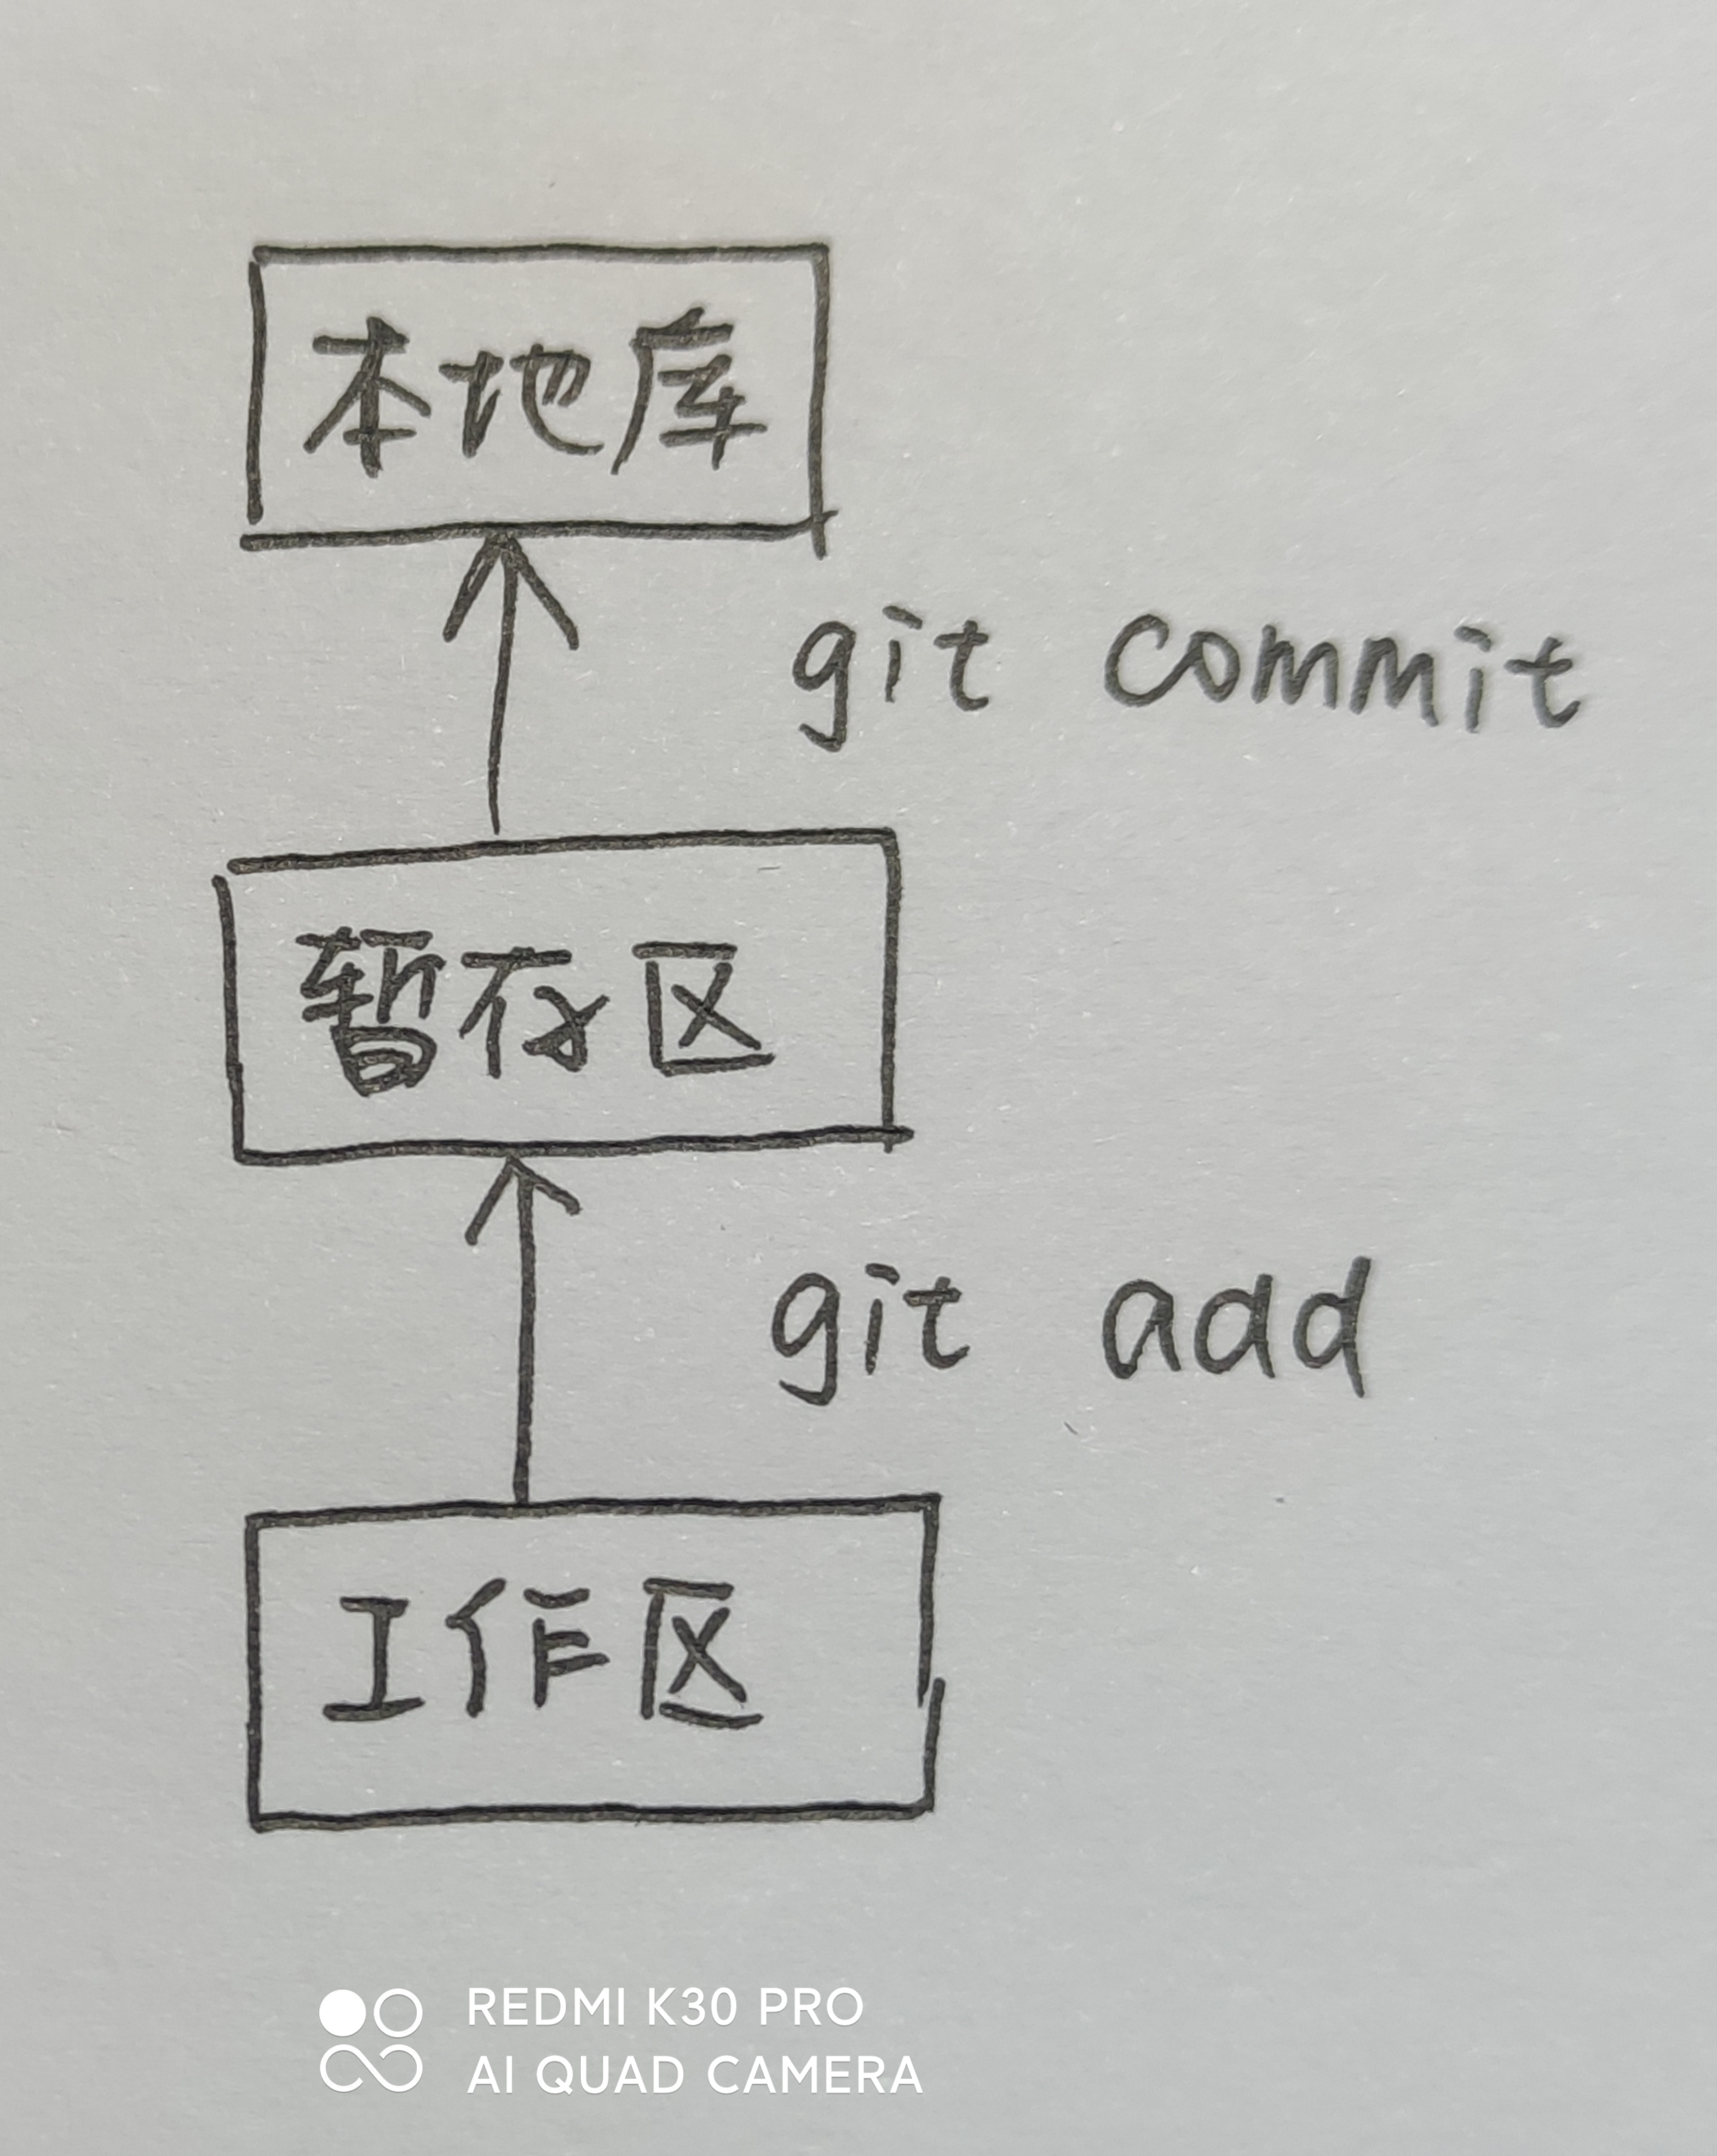 本地库
git commit
暂存区
git add
工作区
REDMI K30 PRO
AI QUAD CAMERA